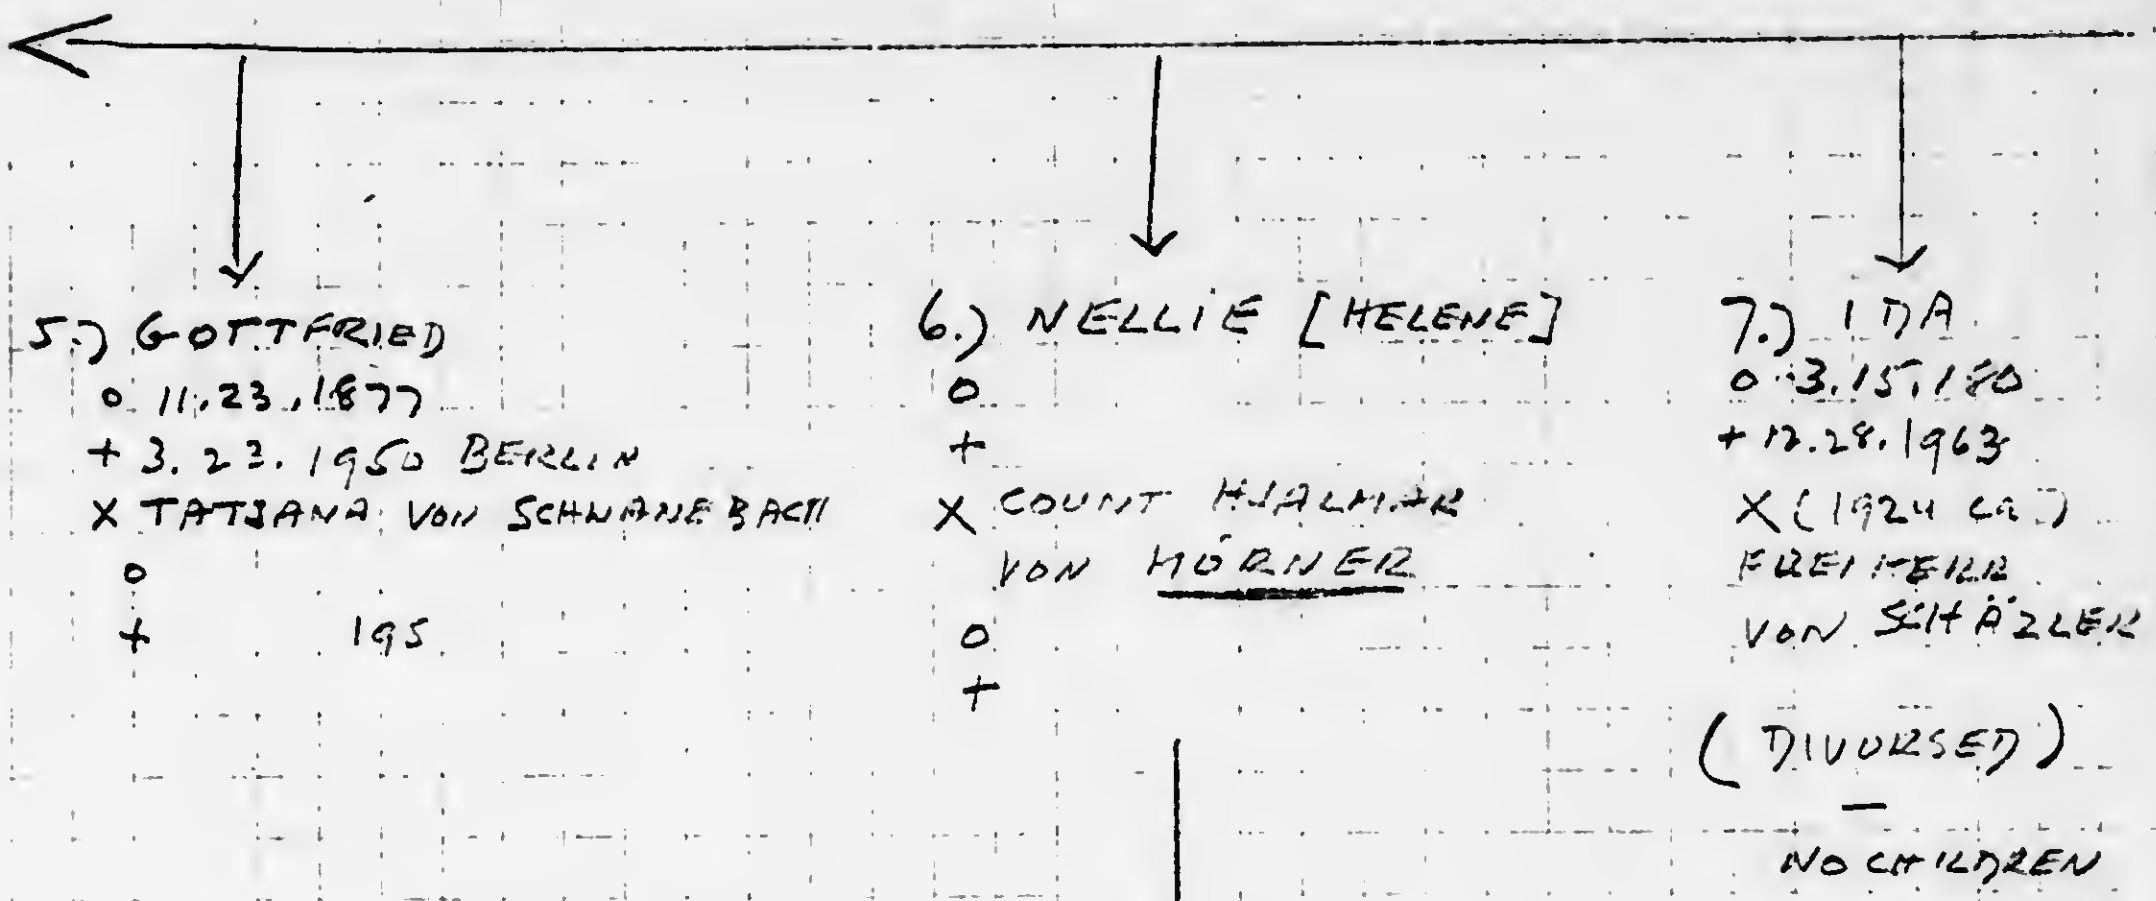 5.) GOTTFRIED
o 11.23.1877
+ 3.23.1950 BERLIN
X TATJANA VON SCHWANEBACH
o
+ 195
6.) NELLIE [HELENE]
o
+
X COUNT HJALMAR
VON HÖRNER
o
+
7.) IDA
o 3.15.180
+ 12.28.1963
X (1924 CA.)
FREIHERR
VON SCHÄZLER
(DIVORSED)
—
NO CHILDREN